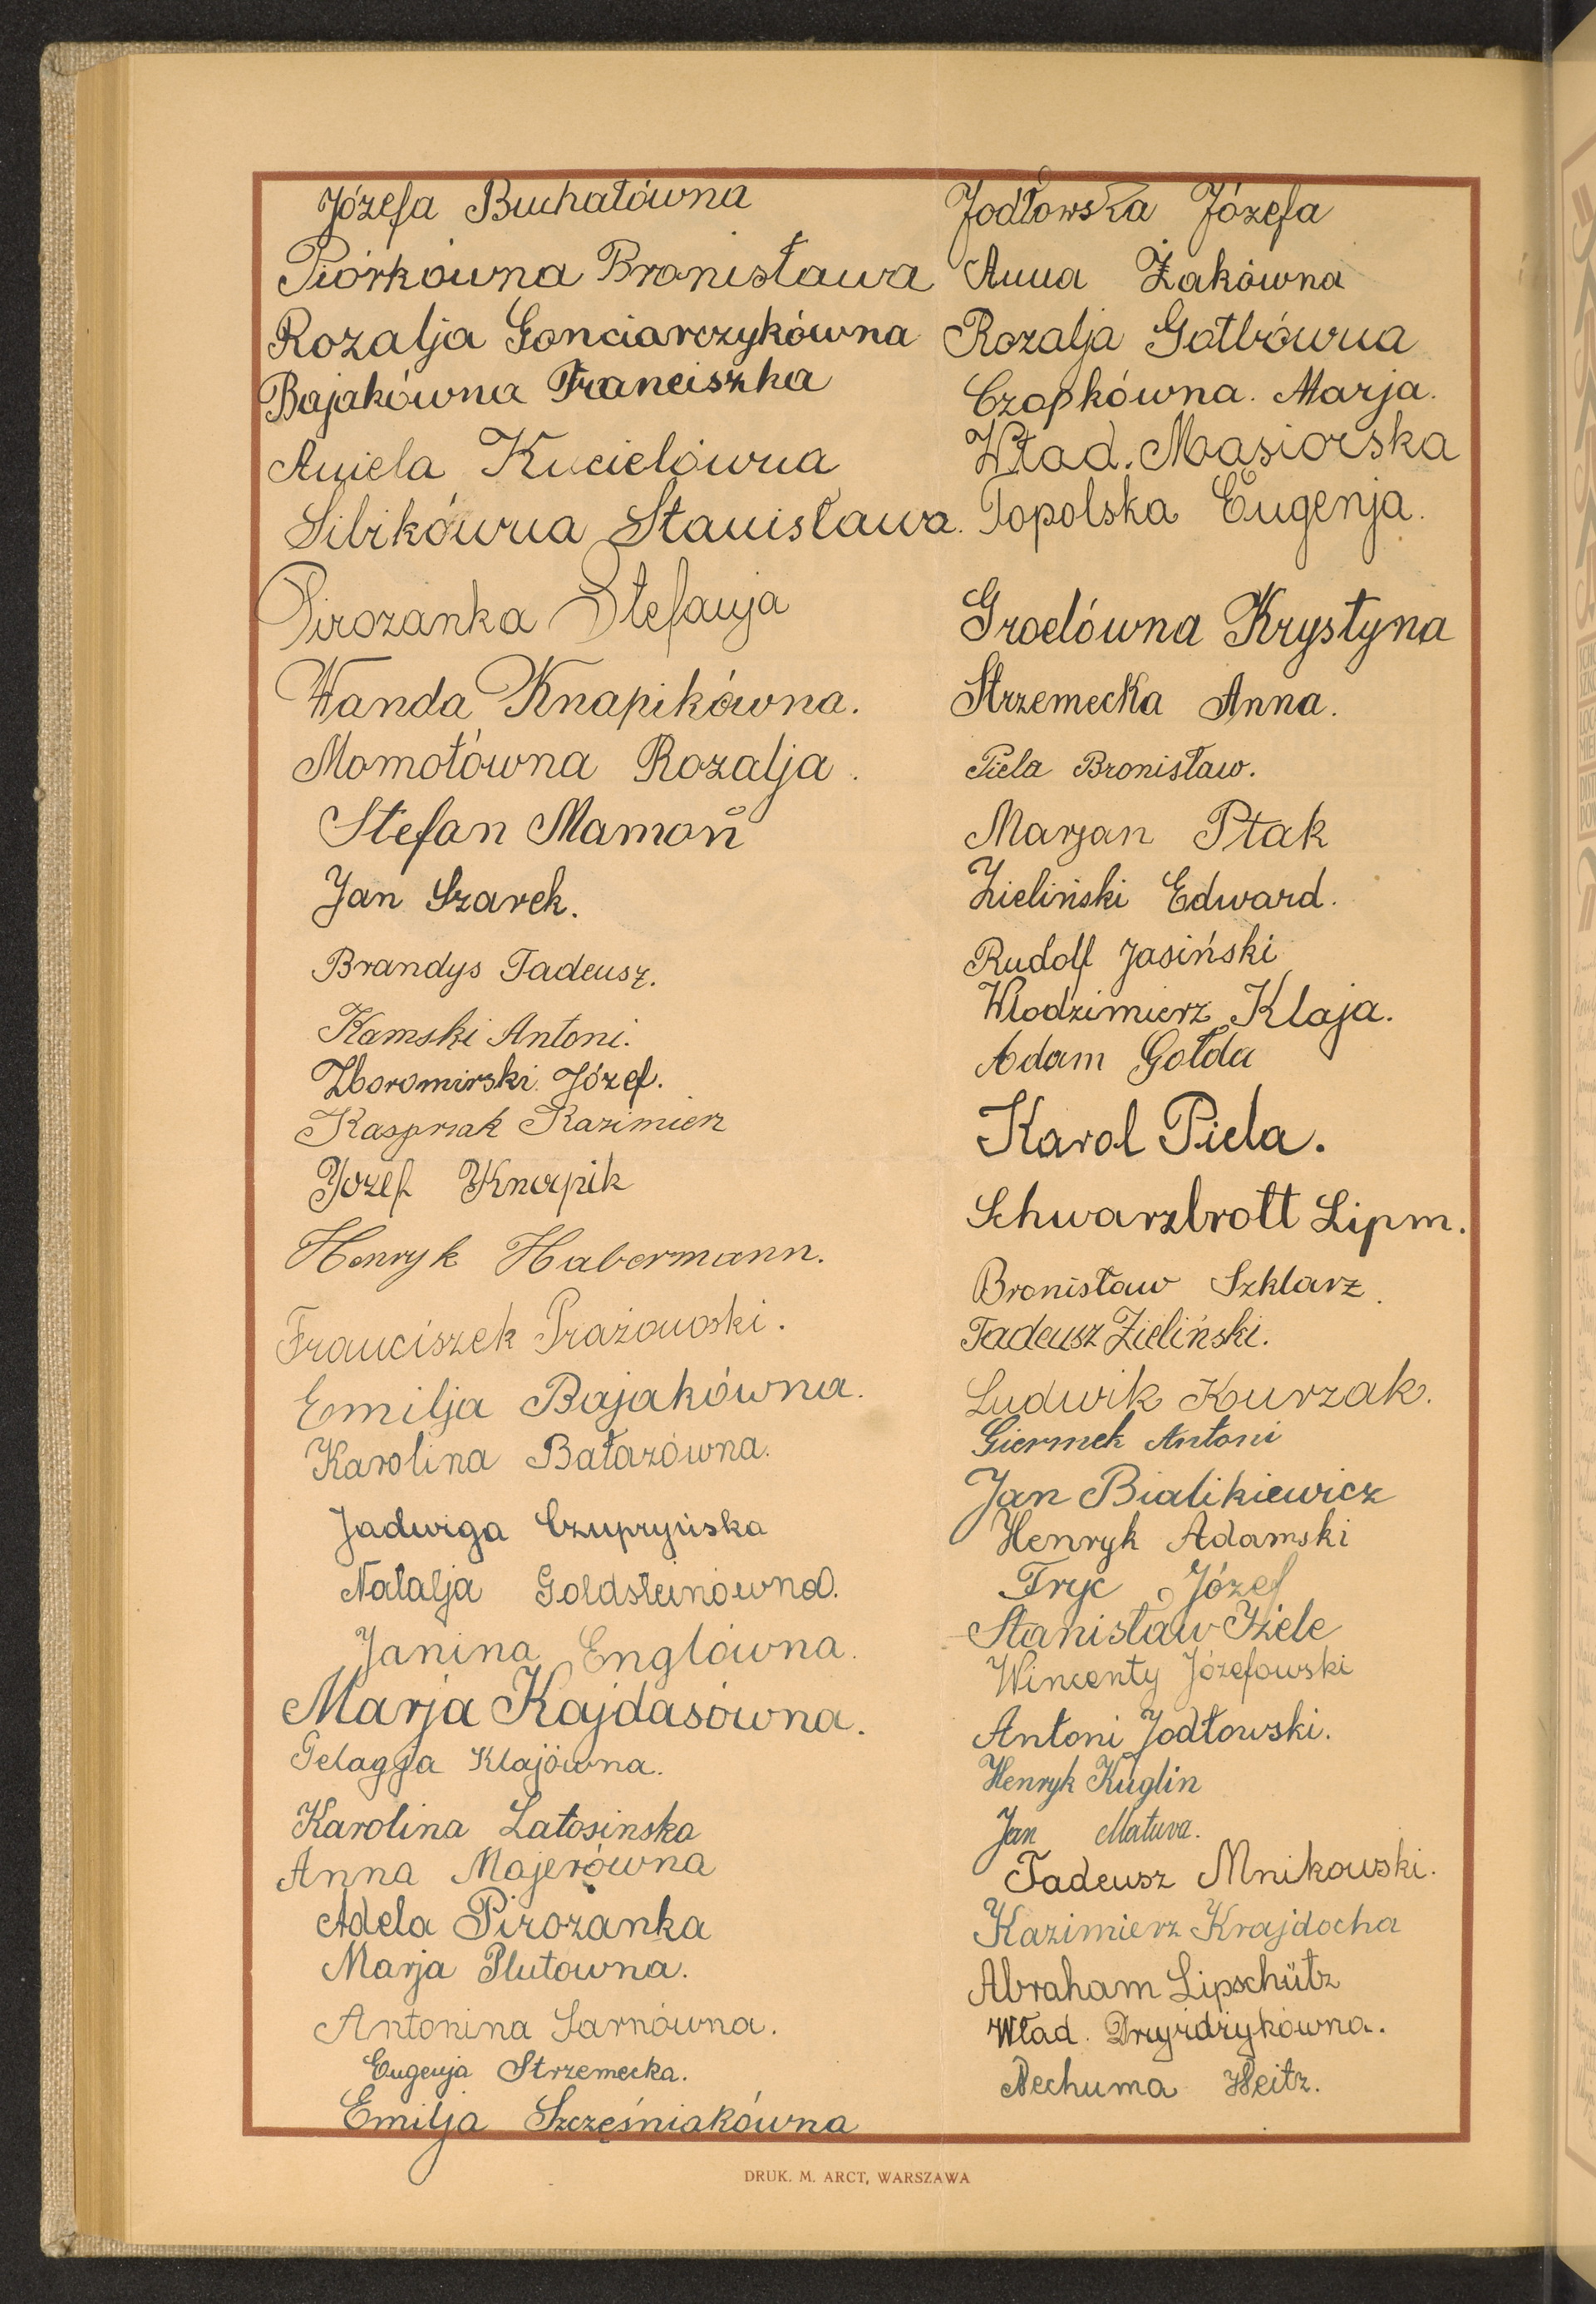 Józefa Buchałówna
Piórkówna Bronisława
Rozalja Gonciarczykówna
Bajakówna Franciszka
Aniela Kucielówna
Sibikówna Stanisława.
Pirozanka Stefanja
Wanda Knapikówna.
Momotówna Rozalja.
Stefan Mamoń
Jan Szarek.
Brandys Tadeusz.
Kamski Antoni.
Zboromirski Józef.
Kasprzak Kazimierz
Józef Knapik
Henryk Habermann.
Franciszek Prażowski.
Emilja Bajakówna.
Karolina Bałazówna.
Jadwiga Czupryńska
Natalja Goldsteinówna.
Janina Englówna.
Marja Kajdasówna.
Pelagja Klajówna.
Karolina Latosinska
Anna Majerówna
Adela Pirozanka
Marja Plutowna.
Antonina Sarnówna.
Eugenja Strzemecka.
Emilja Szczęśniakówna
Jodłowska Józefa
Anna Żakówna
Rozalja Gołbówna
Czopkówna. Marja.
Wład. Masiorska
Topolska Eugenja.
Grodówna Krystyna
Strzemecka Anna.
Piela Bronisław.
Marjan Ptak
Zieliński Edward.
Rudolf Jasiński
Włodzimierz Klaja.
Adam Gołda
Karol Piela.
Schwarzbrott Lipm.
Bronisław Szklarz.
Tadeusz Zieliński.
Ludwik Kurzak.
Giermek Antoni
Jan Bialikiewicz
Henryk Adamski
Fryc Józef
Stanisław
Wincenty Józefowski
Antoni Jodłowski.
Henryk Kuglin
Jan
Tadeusz Mnikowski.
Kazimierz Krajdocha
Abraham Lipschütz
Wład. Dryżdżykówna.
Nechuma Weitz.
DRUK. M. ARCT, WARSZAWA